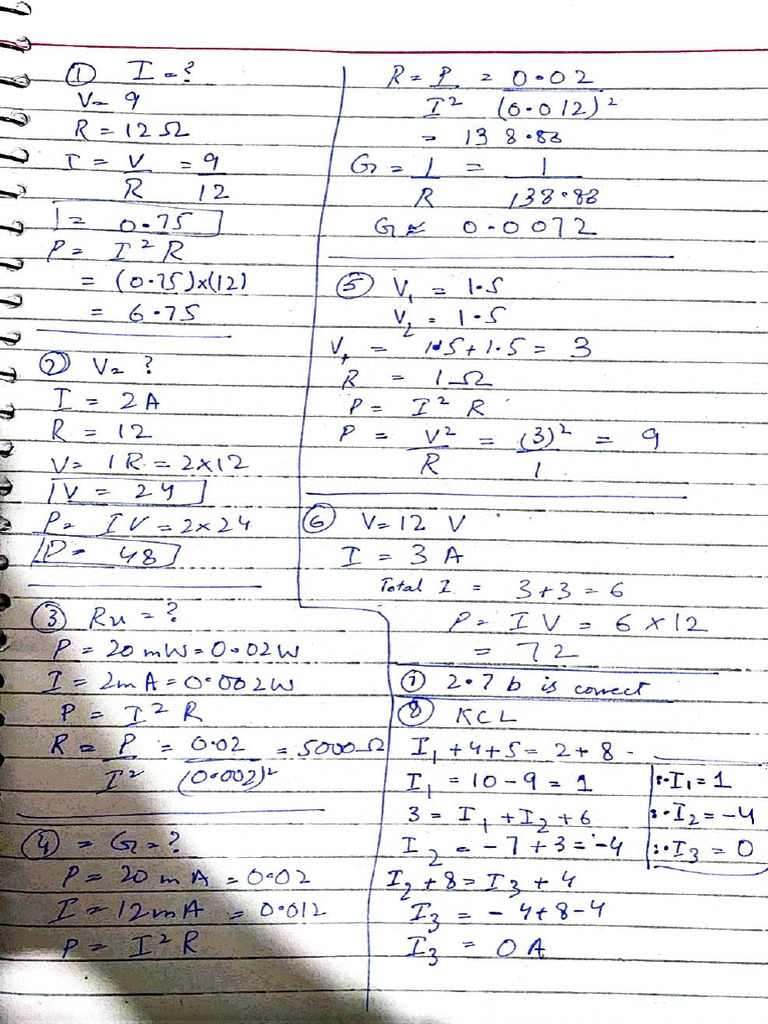 ① I = ?
V = 9
R = 12 Ω
I = V/R = 9/12
I = 0.75
P = I² R
= (0.75)x(12)
= 6.75
② V = ?
I = 2A
R = 12
V = IR = 2x12
V = 24
P = IV = 2x24
P = 48
③ Ru = ?
P = 20 mW = 0.02W
I = 2mA = 0.002W
P = I² R
R = P/I² = 0.02/(0.002)² = 5000Ω
④ = G = ?
P = 20 mA = 0.02
I = 12mA = 0.012
P = I² R
R = P/I² = 0.02/(0.012)²
= 138.88
G = 1/R = 1/138.88
G ≈ 0.0072
⑤ V₁ = 1.5
V₂ = 1.5
V₊ = 1.5+1.5 = 3
R = 1Ω
P = I² R
P = V²/R = (3)²/1 = 9
⑥ V = 12 V
I = 3 A
Total I = 3+3 = 6
P = IV = 6 x 12
= 72
⑦ 2.7 b is correct
⑧ KCL
I₁ + 4 + 5 = 2 + 8
I₁ = 10 - 9 = 1
3 = I₁ + I₂ + 6
I₂ = -7 + 3 = -4
I₂ + 8 = I₃ + 4
I₃ = -4+8-4
I₃ = 0 A
∴ I₁ = 1
∴ I₂ = -4
∴ I₃ = 0